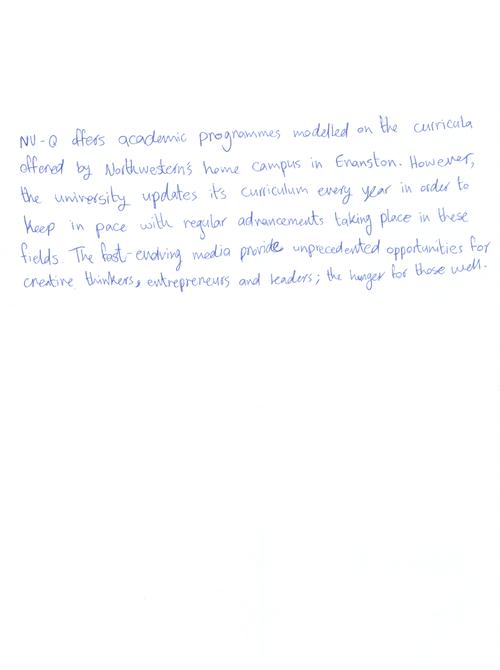 NU-Q offers academic programmes modelled on the curricula
offered by Northwestern's home campus in Evanston. However,
the university updates it's curriculum every year in order to
keep in pace with regular advancements taking place in these
fields. The fast-evolving media provide unprecedented opportunities for
creative thinkers, entrepreneurs and leaders; the hunger for those well.